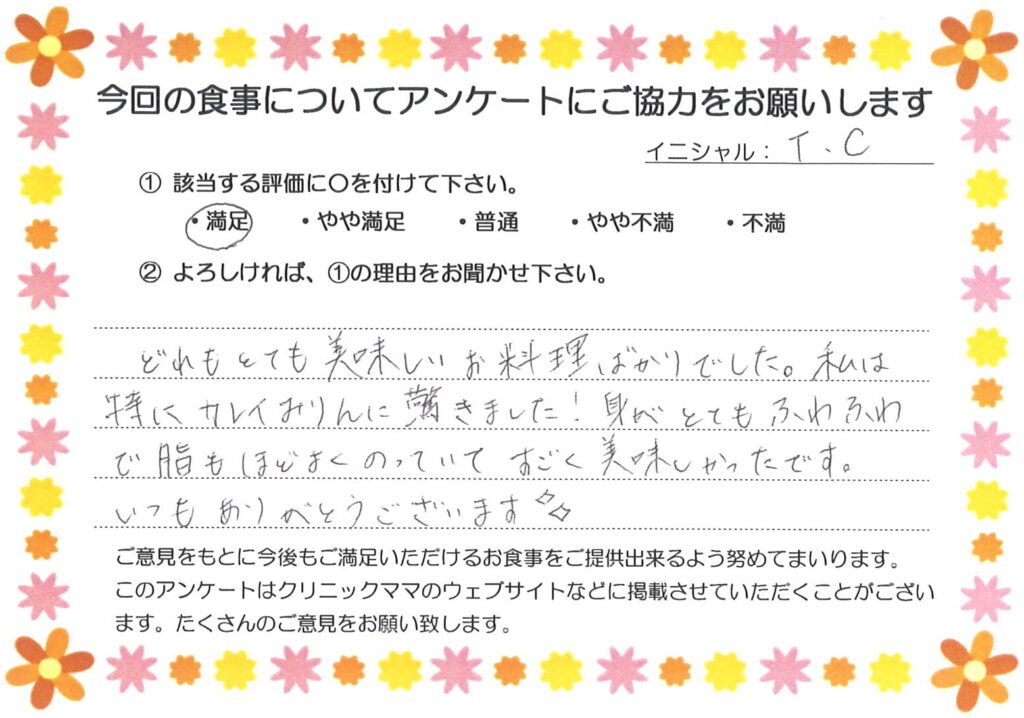 今回の食事についてアンケートにご協力をお願いします
イニシャル： T．C
① 該当する評価に〇を付けて下さい。
・満足 ・やや満足 ・普通 ・やや不満 ・不満
② よろしければ、①の理由をお聞かせ下さい。
どれもとても美味しいお料理ばかりでした。私は
特に カレイおりんに驚きました！身がとてもふわふわ
で脂もほどよくのっていて すごく美味しかったです。
いつもありがとうございます
ご意見をもとに今後もご満足いただけるお食事をご提供出来るよう努めてまいります。
このアンケートはクリニックママのウェブサイトなどに掲載させていただくことがござい
ます。たくさんのご意見をお願い致します。